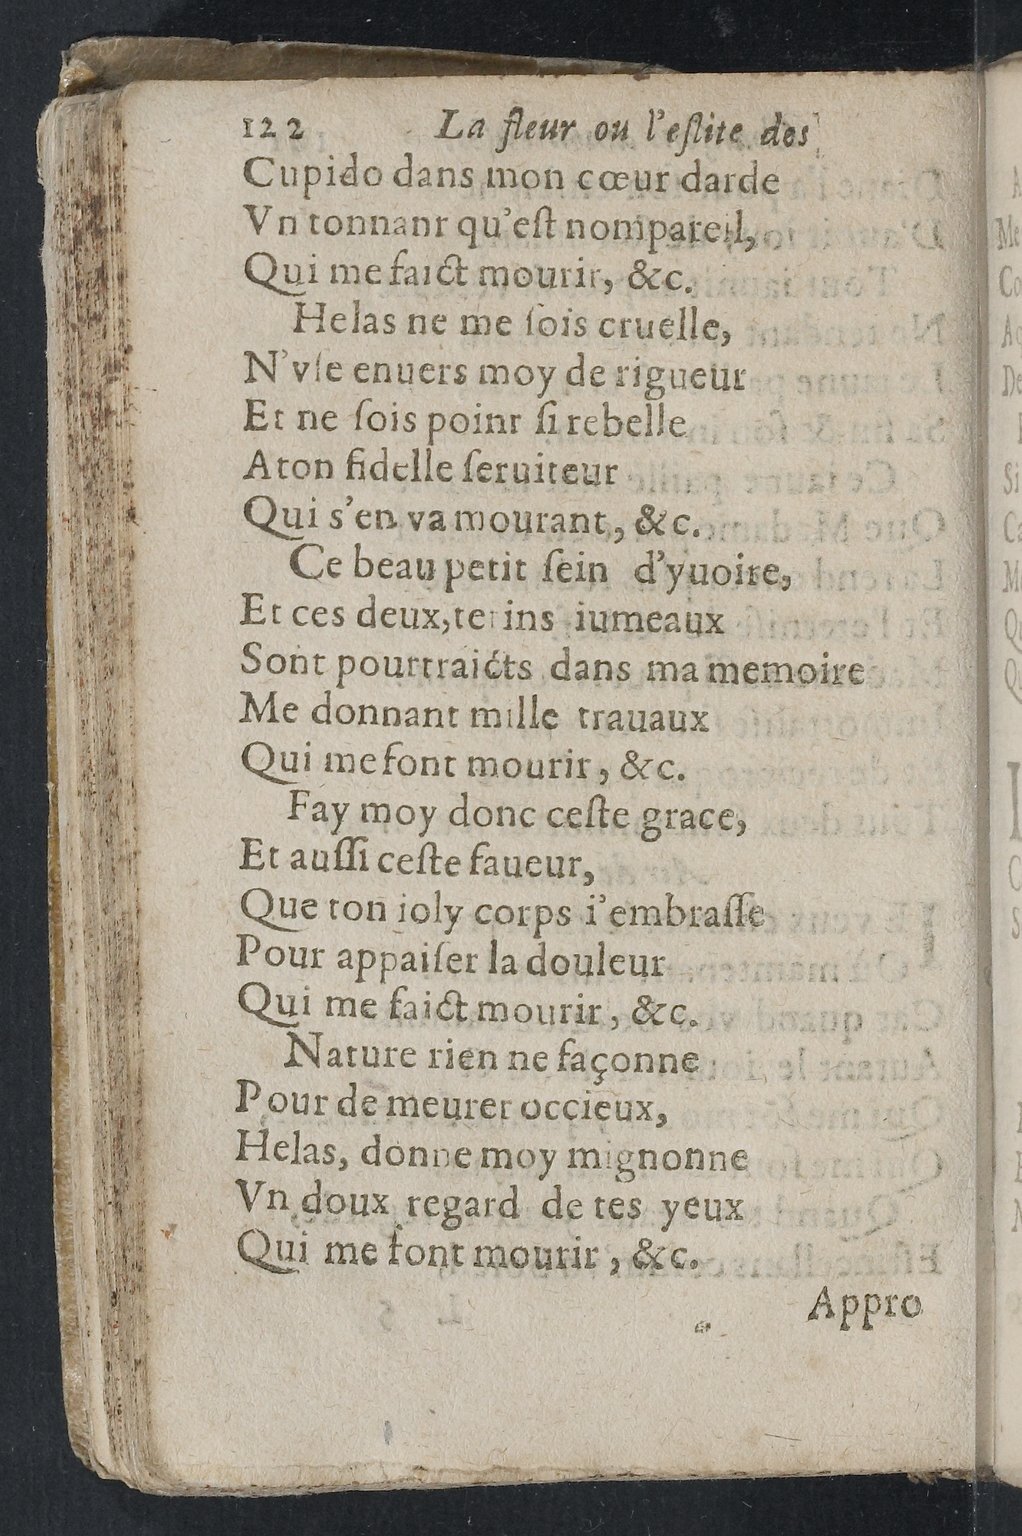 122 La fleur ou l'eſlite des
Cupido dans mon cœur darde
Vn tonnanr qu'eſt nompareil,
Qui me faict mourir, &c.
Helas ne me ſois cruelle,
N'vſe enuers moy de rigueur
Et ne ſois poinr ſi rebelle
A ton fidelle ſeruiteur
Qui s'en va mourant, &c.
Ce beau petit ſein d'yuoire,
Et ces deux, tetins iumeaux
Sont pourtraicts dans ma memoire
Me donnant mille trauaux
Qui me font mourir, &c.
Fay moy donc ceſte grace,
Et auſſi ceſte faueur,
Que ton ioly corps i'embraſſe
Pour appaiſer la douleur
Qui me faict mourir, &c.
Nature rien ne façonne
Pour de meurer occieux,
Helas, donne moy mignonne
Vn doux regard de tes yeux
Qui me font mourir, &c.
Appro